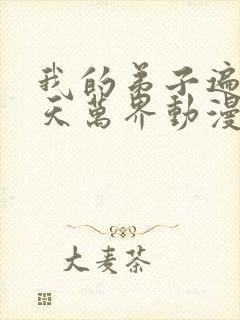 我的弟子遍
天萬界動漫
大麦茶